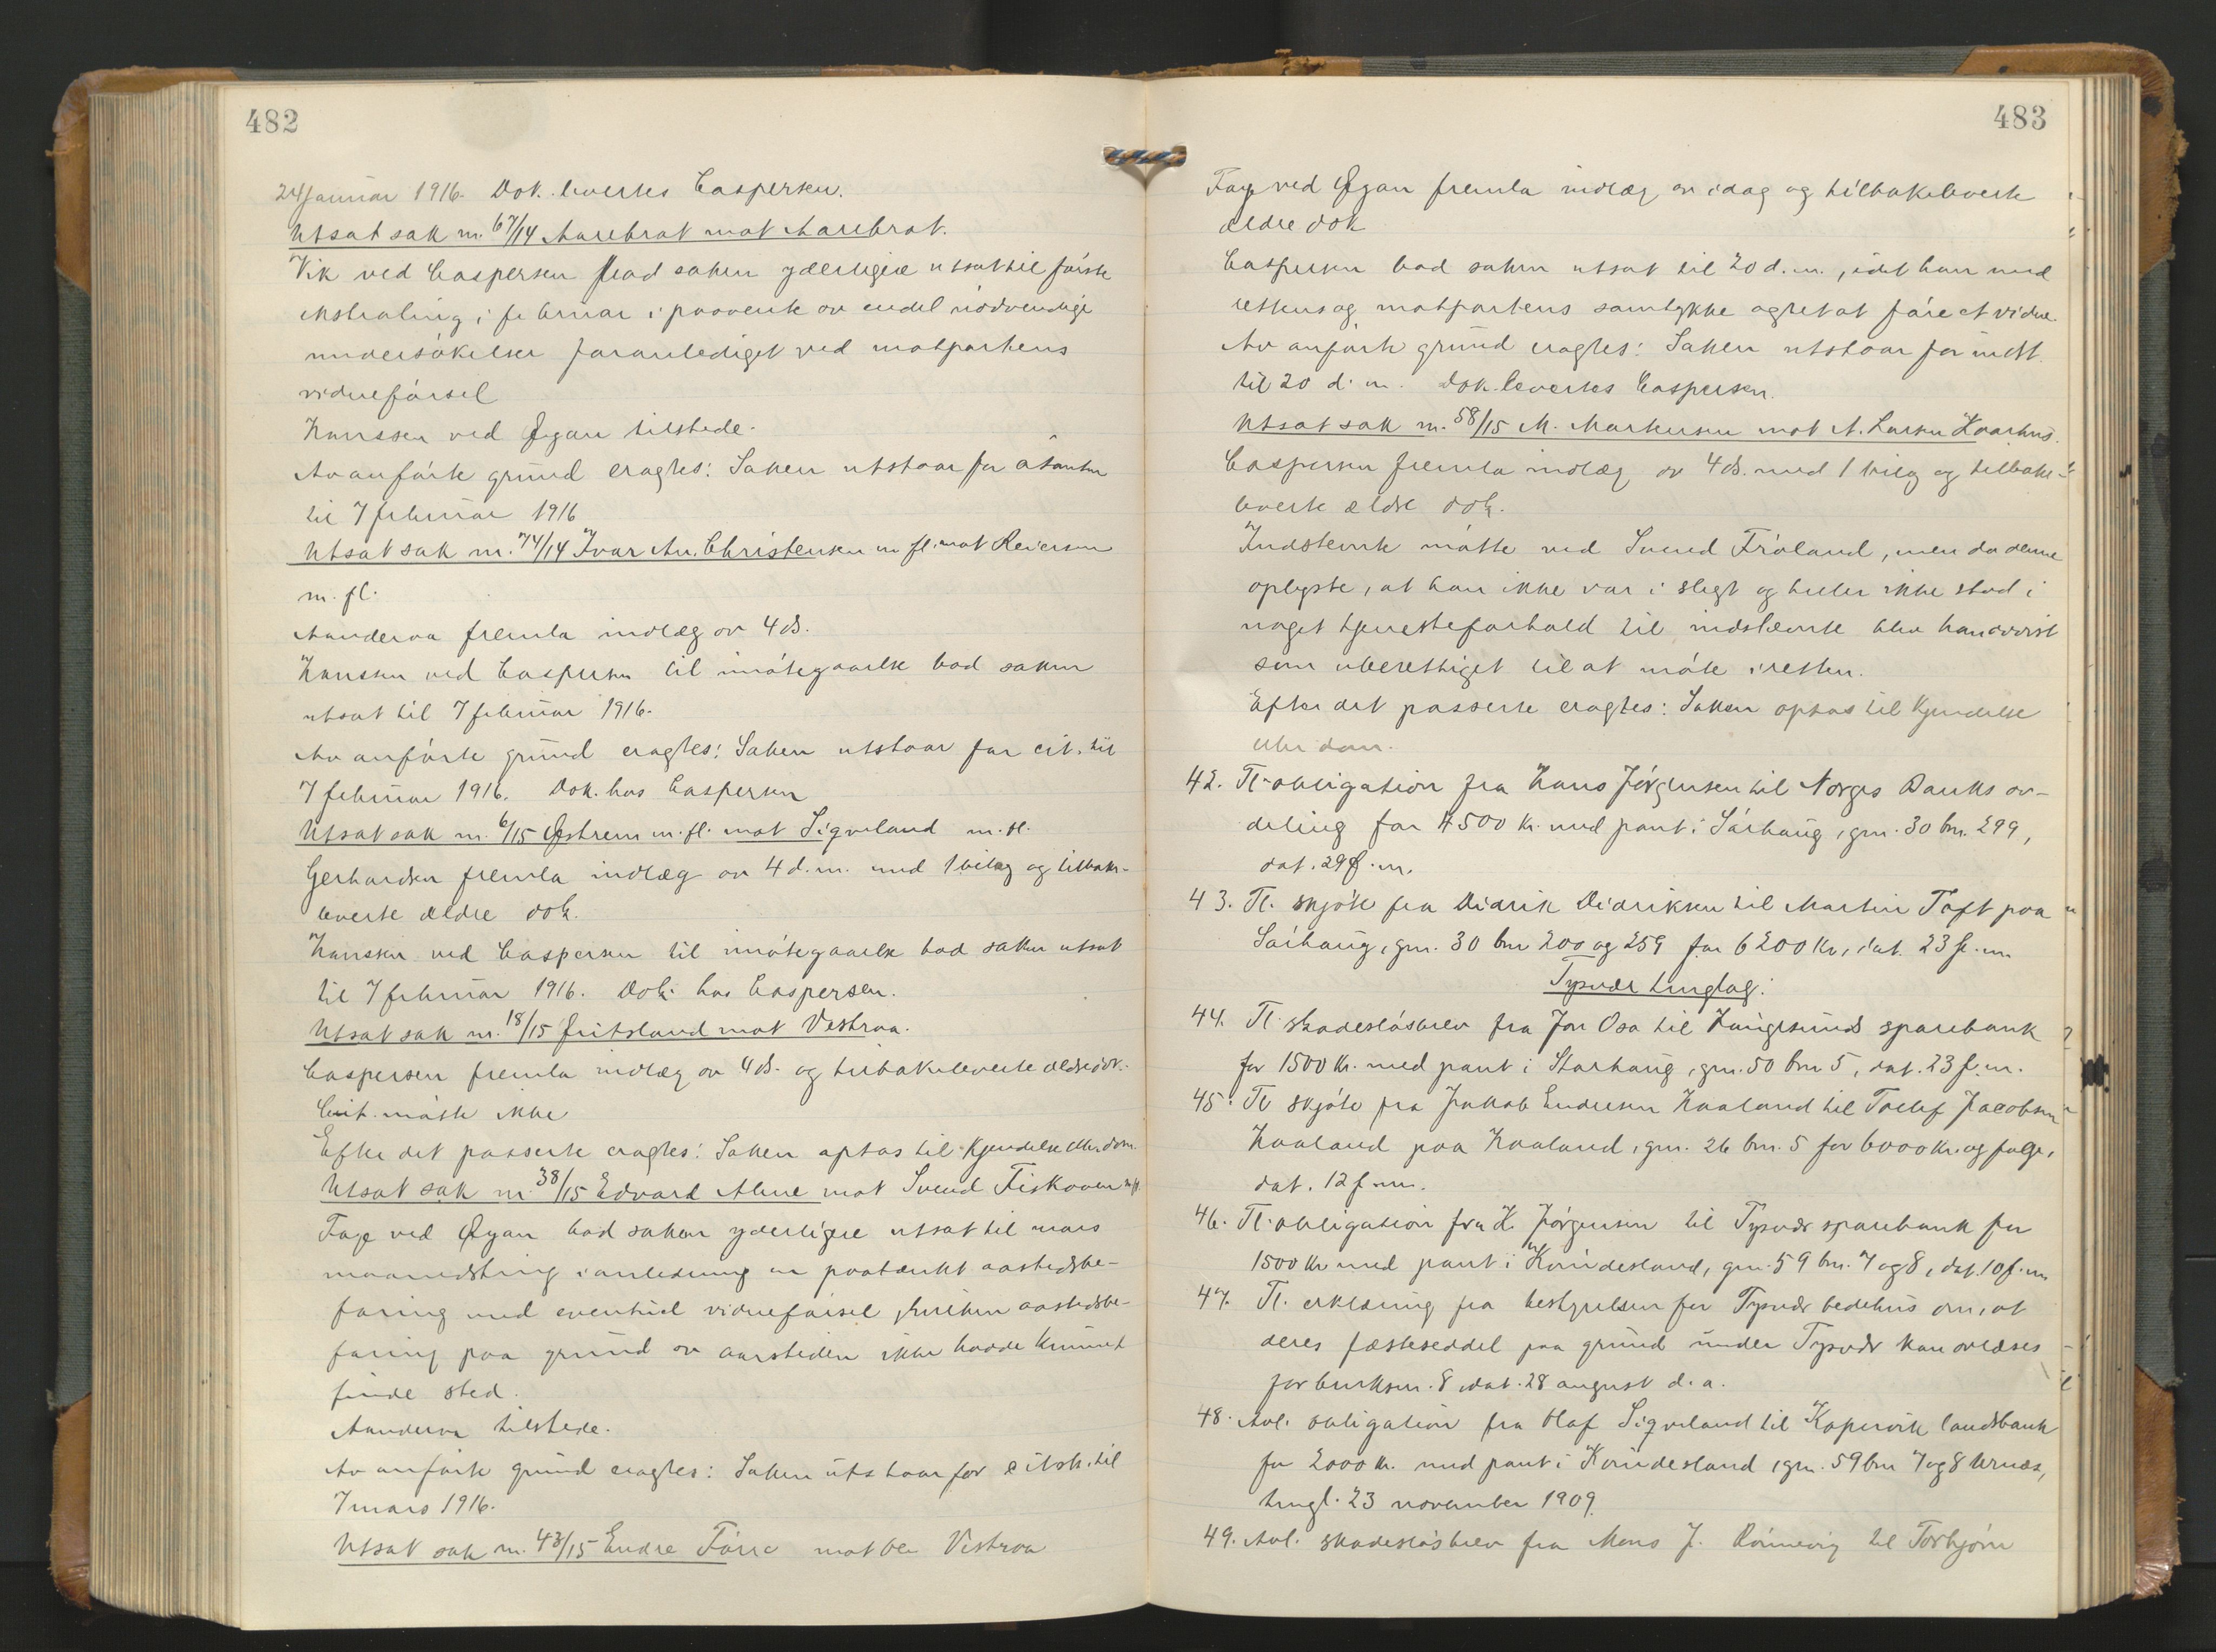 482
24 januar 1916. Dok. levertes Caspersen.
Utsat sak nr. 67/14 Aarebrot mot Aarebrot.
Vik ved Caspersen bad saken yderligere utsat til første
ekstrating i februar i paavente av endel nødvendige
undersøkelser foranlediget ved motpartens
vidneførsel
Hanssen ved Øgan tilstede.
Av anførte grund eragtes: Saken utstaar for
til 7 februar 1916
Utsat sak nr. 74/14 Ivar An. Christensen m fl. mot Reiersen
m. fl.
Aanderaa fremla indlæg av 4 ds.
Hanssen ved Caspersen til imøtegaaelse bad saken
utsat til 7 februar 1916.
Av anførte grund eragtes: Saken utstaar for cit. til
7 februar 1916. Dok. hos Caspersen
Utsat sak nr. 6/15 Østrem m. fl. mot Sigveland m. fl.
Gerhardsen fremla indlæg av 4 d. m. med 1 bilag og tilbake-
leverte ældre dok.
Hanssen ved Caspersen til imøtegaaelse bad saken utsat
til 7 februar 1916. Dok. hos Caspersen.
Utsat sak nr. 18/15 Fritsland mot Vestraa.
Caspersen fremla indlæg av 4 ds. og tilbakeleverte ældre dok.
Cit. møtte ikke
Efter det passerte eragtes: Saken optas til Kjendelse eller dom.
Utsat sak nr. 38/15 Edvard Alne mot Svend Fiskaaen m fl.
Fage ved Øgan bad saken yderligere utsat til mars
maanedsting i anledning en paatænkt aastedsbe-
faring med eventuel vidneførsel, hvilken aastedsbe-
faring paa grund av aarstiden ikke hadde kunnet
finde sted.
Aanderaa tilstede.
Av anførte grund eragtes: Saken utstaar for citsk. til
7 mars 1916.
Utsat sak nr. 43/15 Endre Førre mot Vestraa
483
Fage ved Øgan fremla indlæg av idag og tilbakeleverte
ældre dok
Caspersen bad saken utsat til 20 d. m., idet han med
rettens og motpartens samtykke agtet at føre et vidne.
Av anførte grund eragtes: Saken utstaar for indst.
til 20 d. m. Dok. levertes Caspersen.
Utsat sak nr. 58/15 M. Markusen mot A. Larsen Kvarhus.
Caspersen fremla indlæg av 4 ds. med 1 bilag og tilbake-
leverte ældre dok.
Indstevnte møtte ved Svend Frøland, men da denne
oplyste, at han ikke var i slegt og heller ikke stod i
noget tjenesteforhold til indstævnte blev han avvist
som uberettiget til at møte i retten.
Efter det passerte eragtes: Saken optas til Kjendelse
eller dom.
42. Tl. obligation fra Hans Jørgensen til Norges Banks av-
deling for 4500 kr. med pant i Sørhaug, gnr. 30 bnr. 299,
dat. 29 f. m.
43. Tl. skjøte fra Didrik Didriksen til Martin Toft paa
Sørhaug, gnr. 30 bnr 200 og 259 for 6200 kr, dat. 23 f. m
Tysvær tinglag:
44. Tl. skadesløsbrev fra Jon Osa til Haugesunds sparebank
for 1500 kr. med pant i Storhaug, gnr. 50 bnr 5, dat. 23 f. m.
45. Tl skjøte fra Jakob Endresen Haaland til Tollef Jacobsen
Haaland paa Haaland, gnr. 26 bnr. 5 for 6000 kr. og følge,
dat. 12 f. m.
46. Tl. obligation fra H. Jørgensen til Tysvær sparebank for
1500 kr med pant i Kvindesland, gnr. 59 bnr. 7 og 8, dat. 10 f. m
47. Tl. erklæring fra bestyrelsen for Tysvær bedehus om, at
deres fæsteseddel paa grund under Tysvær kan avlæses
for bruksnr. 8, dat. 28 august d. a.
48. Avl. obligation fra Olaf Sigveland til Kopervik landsbank
for 2000 kr. med pant i Kvindesland, gnr. 59 bnr 7 og 8
tingl. 23 november 1909.
49. Avl. skadesløsbrev fra Mons J. Rønnevig til Torbjørn